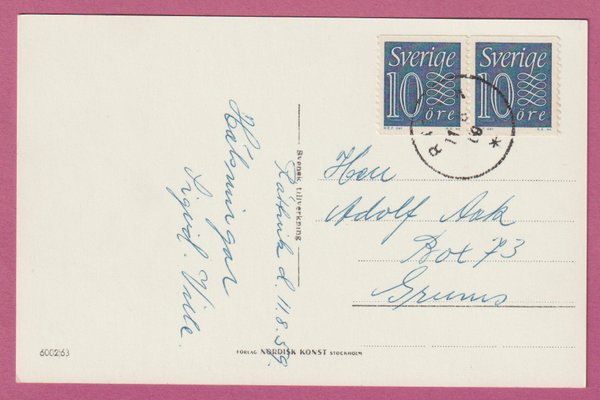 Sverige
10 öre
Sverige
10 öre
Svensk tillverkning
Rättvik d. 11.8.59.
Hälsningar
Sigvd. Ville.
Herr
Adolf Aak
Box 73
Grums
6002/63
FÖRLAG NORDISK KONST STOCKHOLM